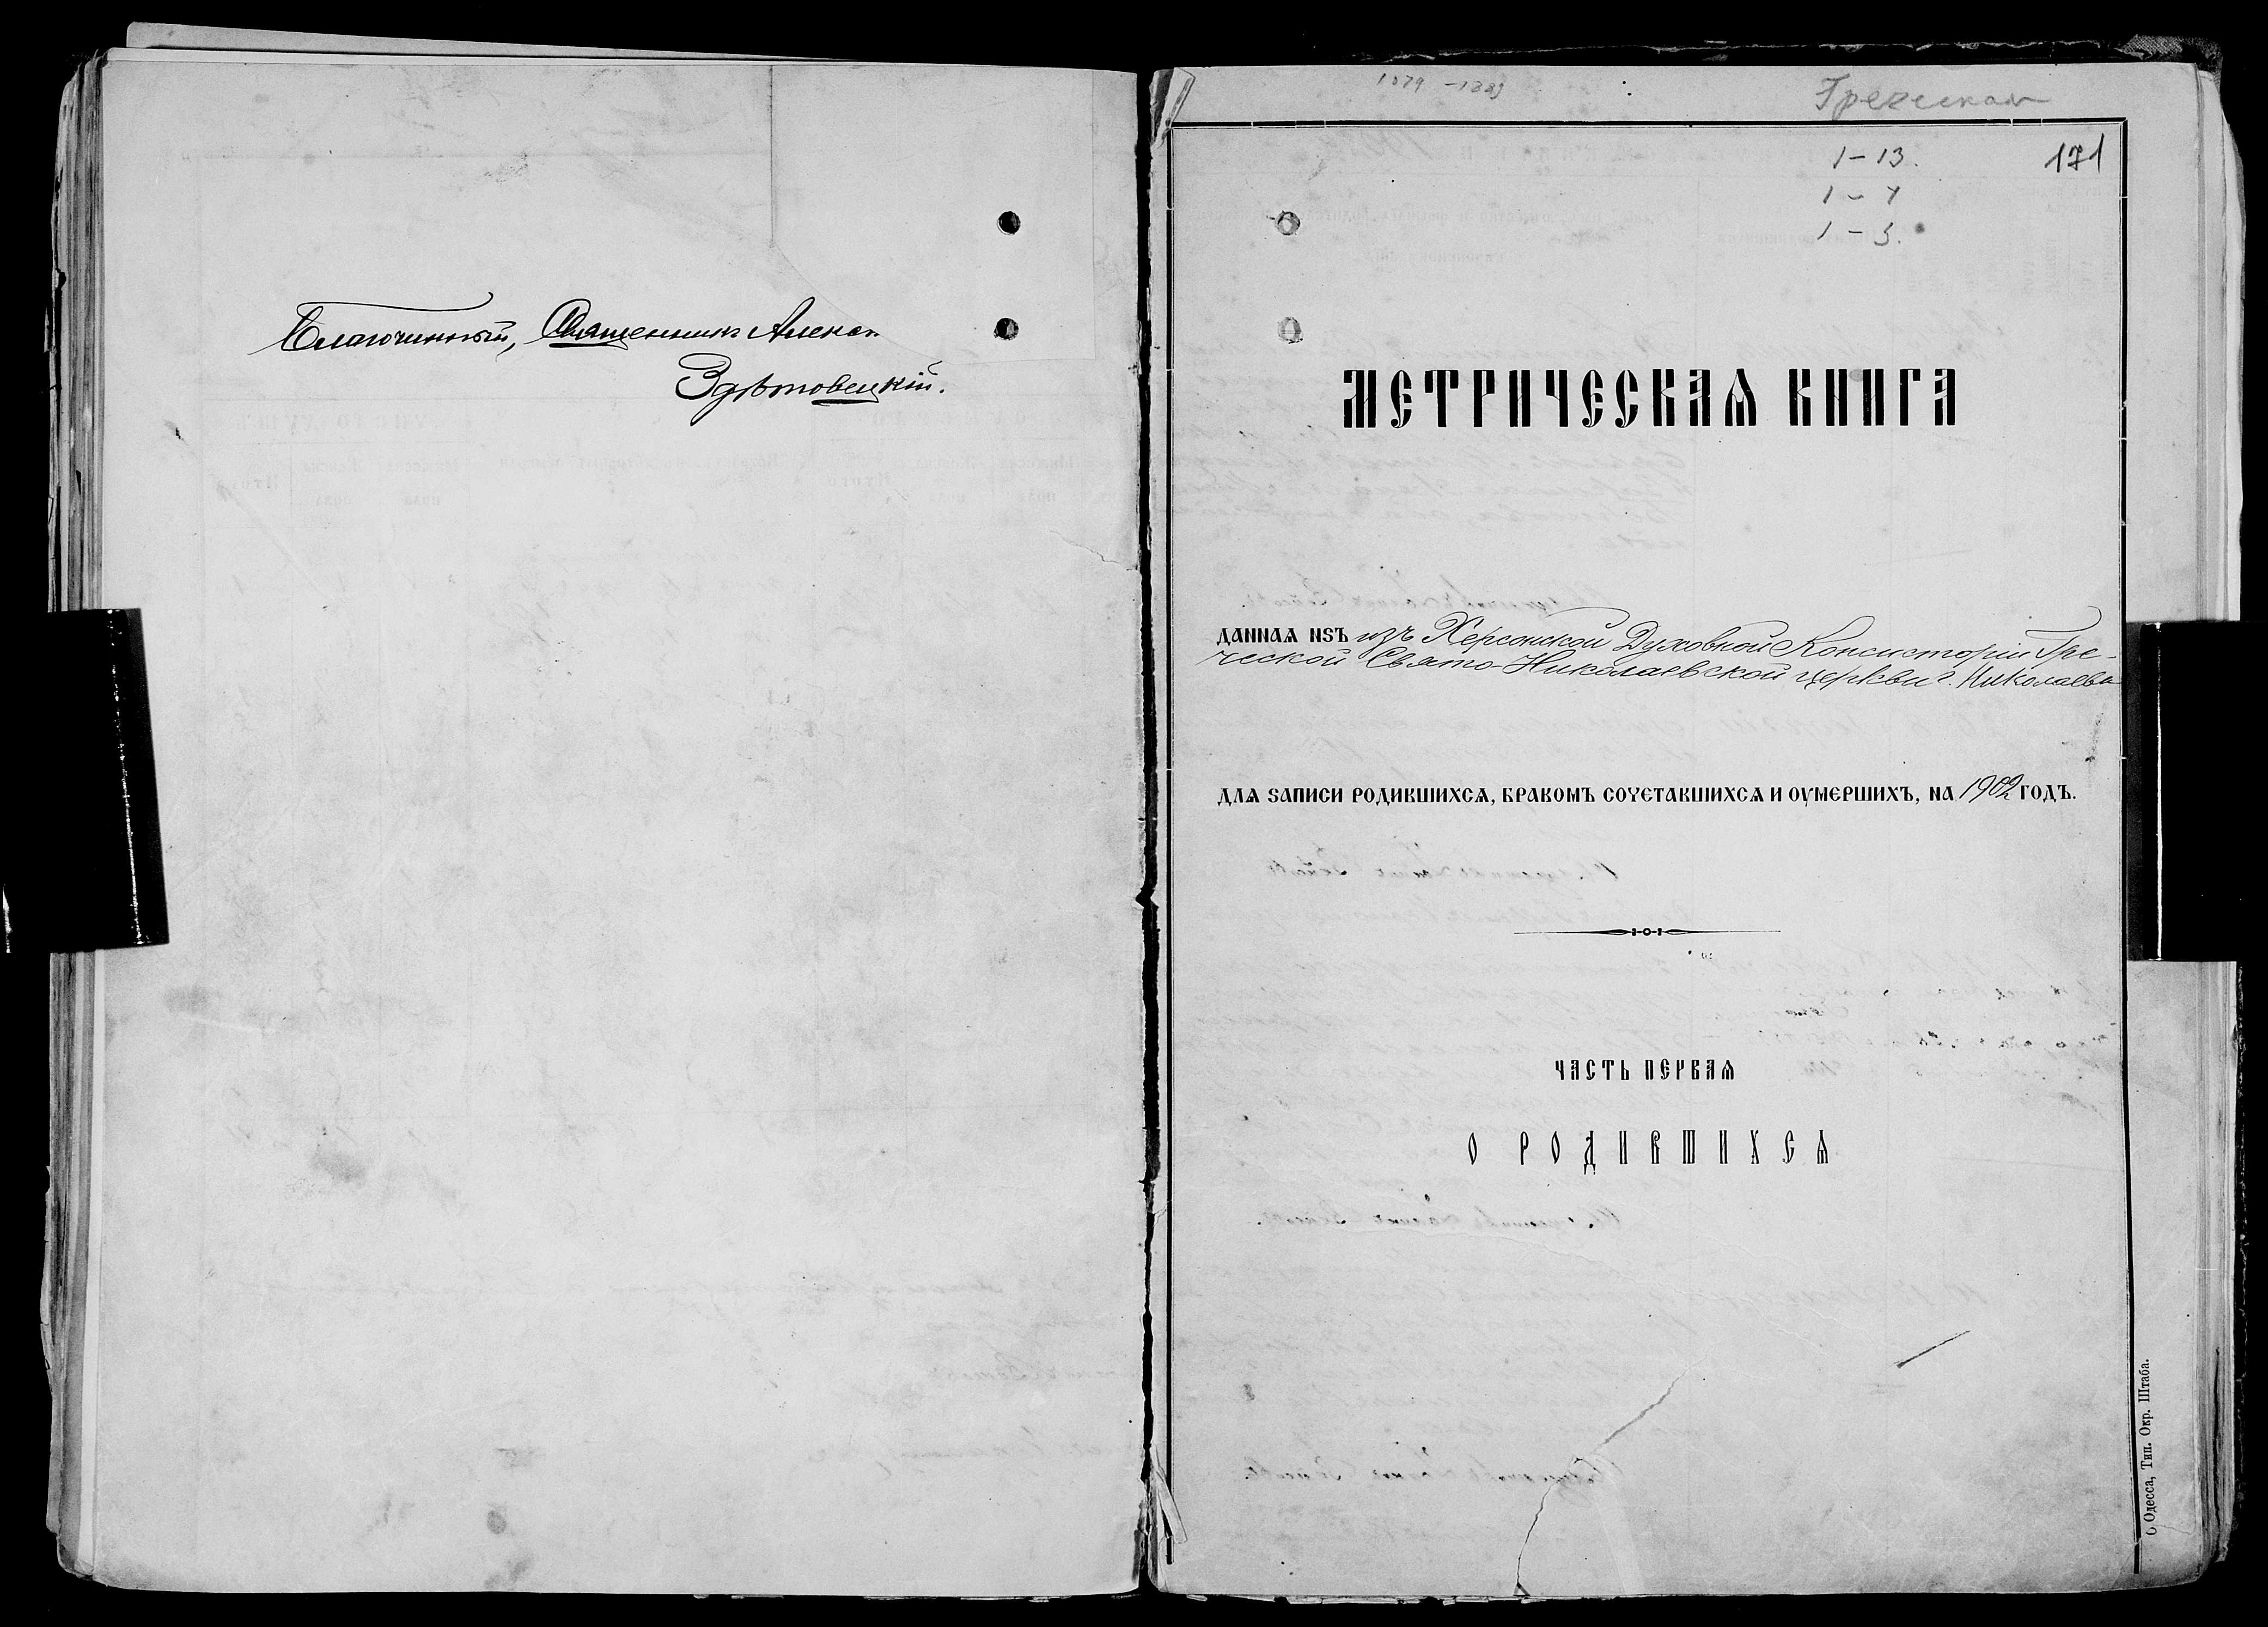 Благочинный, Священник Алекс.
Здѣтовецкій.
1879 - 1889
Греческая
1 - 13.
171
1 - 
1 - 3.
МЕТРИЧЕСКАѦ КНИГА
ДАННАѦ ИЗЪ изъ Херсонской Духовной Консисторіи Гре-
ческой Свято-Николаевской церкви г. Николаева
ДЛѦ ЗАПИСИ РОДИВШИХСѦ, БРАКОМЪ СОЧЕТАВШИХСѦ И ОУМЕРШИХЪ, НА 1902 ГОДЪ.
ЧАСТЬ ПЕРВАѦ
О РОДИВШИХСѦ
Одесса, Тип. Окр. Штаба.